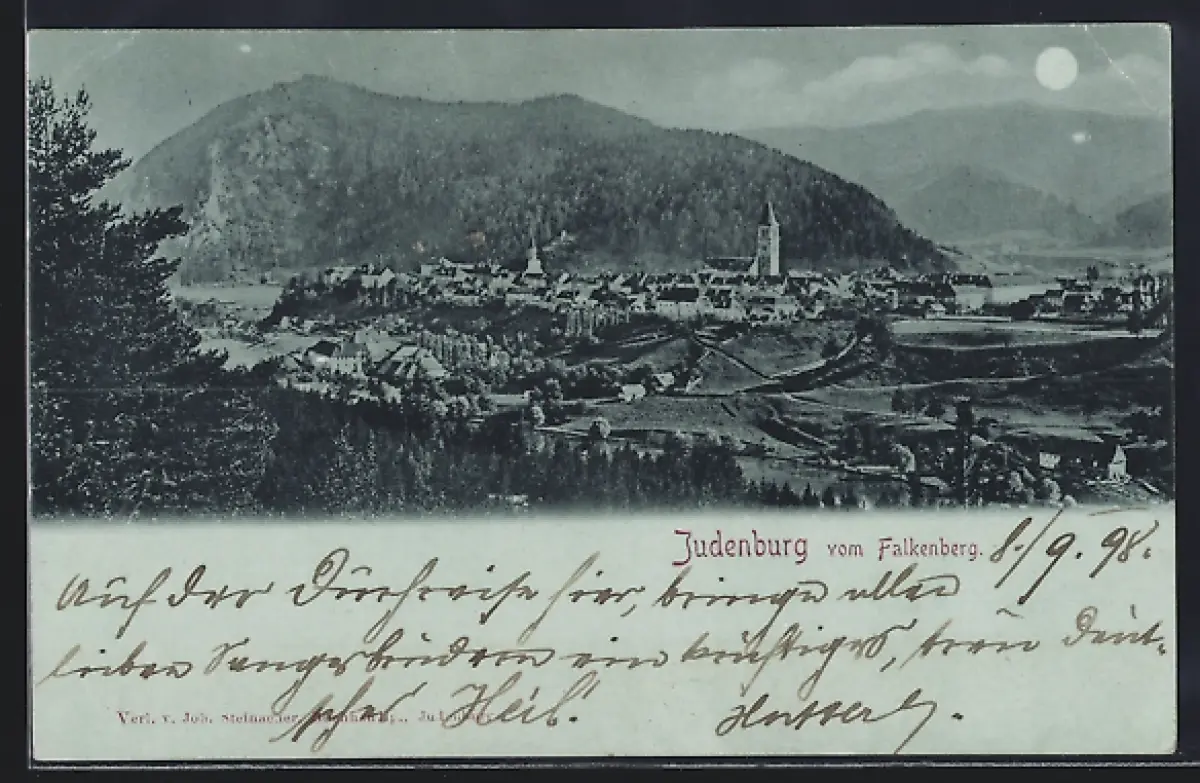 Judenburg vom Falkenberg. 8./9. 98.
Auf der Durchreise hier, bringe allen
lieben Sangesbrüdern ein kräftiges, treu deut-
sches Heil!
Verl. v. Joh. Steinacher, Judenburg.